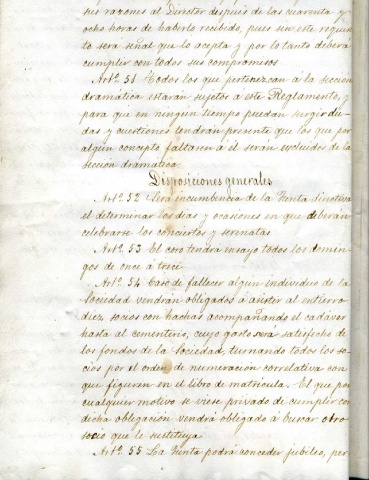 sus razones al Director después de las cuarenta y
ocho horas de haberlo recibido, pues sin este requisi-
to será señal que lo acepta y por lo tanto deberá
cumplir con todos sus compromisos
Artº. 51 Todos los que pertenezcan á la sección
dramática estarán sujetos á este Reglamento, y
para que en ningún tiempo puedan surgir du-
das y cuestiones tendrán presente que los que por
algún concepto faltaren á él serán excluidos de la
sección dramática.
Disposiciones generales
Artº. 52 Será incumbencia de la Junta directiva
el determinar los días y ocasiones en que deberán
celebrarse los conciertos y serenatas
Artº. 53 El coro tendrá ensayo todos los domin-
gos de once á trece.
Artº. 54 Caso de fallecer algún individuo de la
Sociedad vendrán obligados á asistir al entierro
diez socios con hachas acompañando el cadáver
hasta al cementerio, cuyo gasto será satisfecho de
los fondos de la Sociedad, turnando todos los so-
cios por el orden de numeración correlativa con
que figuren en el libro de matrícula. El que por
cualquier motivo se viese privado de cumplir con
dicha obligación vendrá obligado á buscar otro
socio que le sustituya
Artº. 55 La Junta podrá conceder jubileo, per